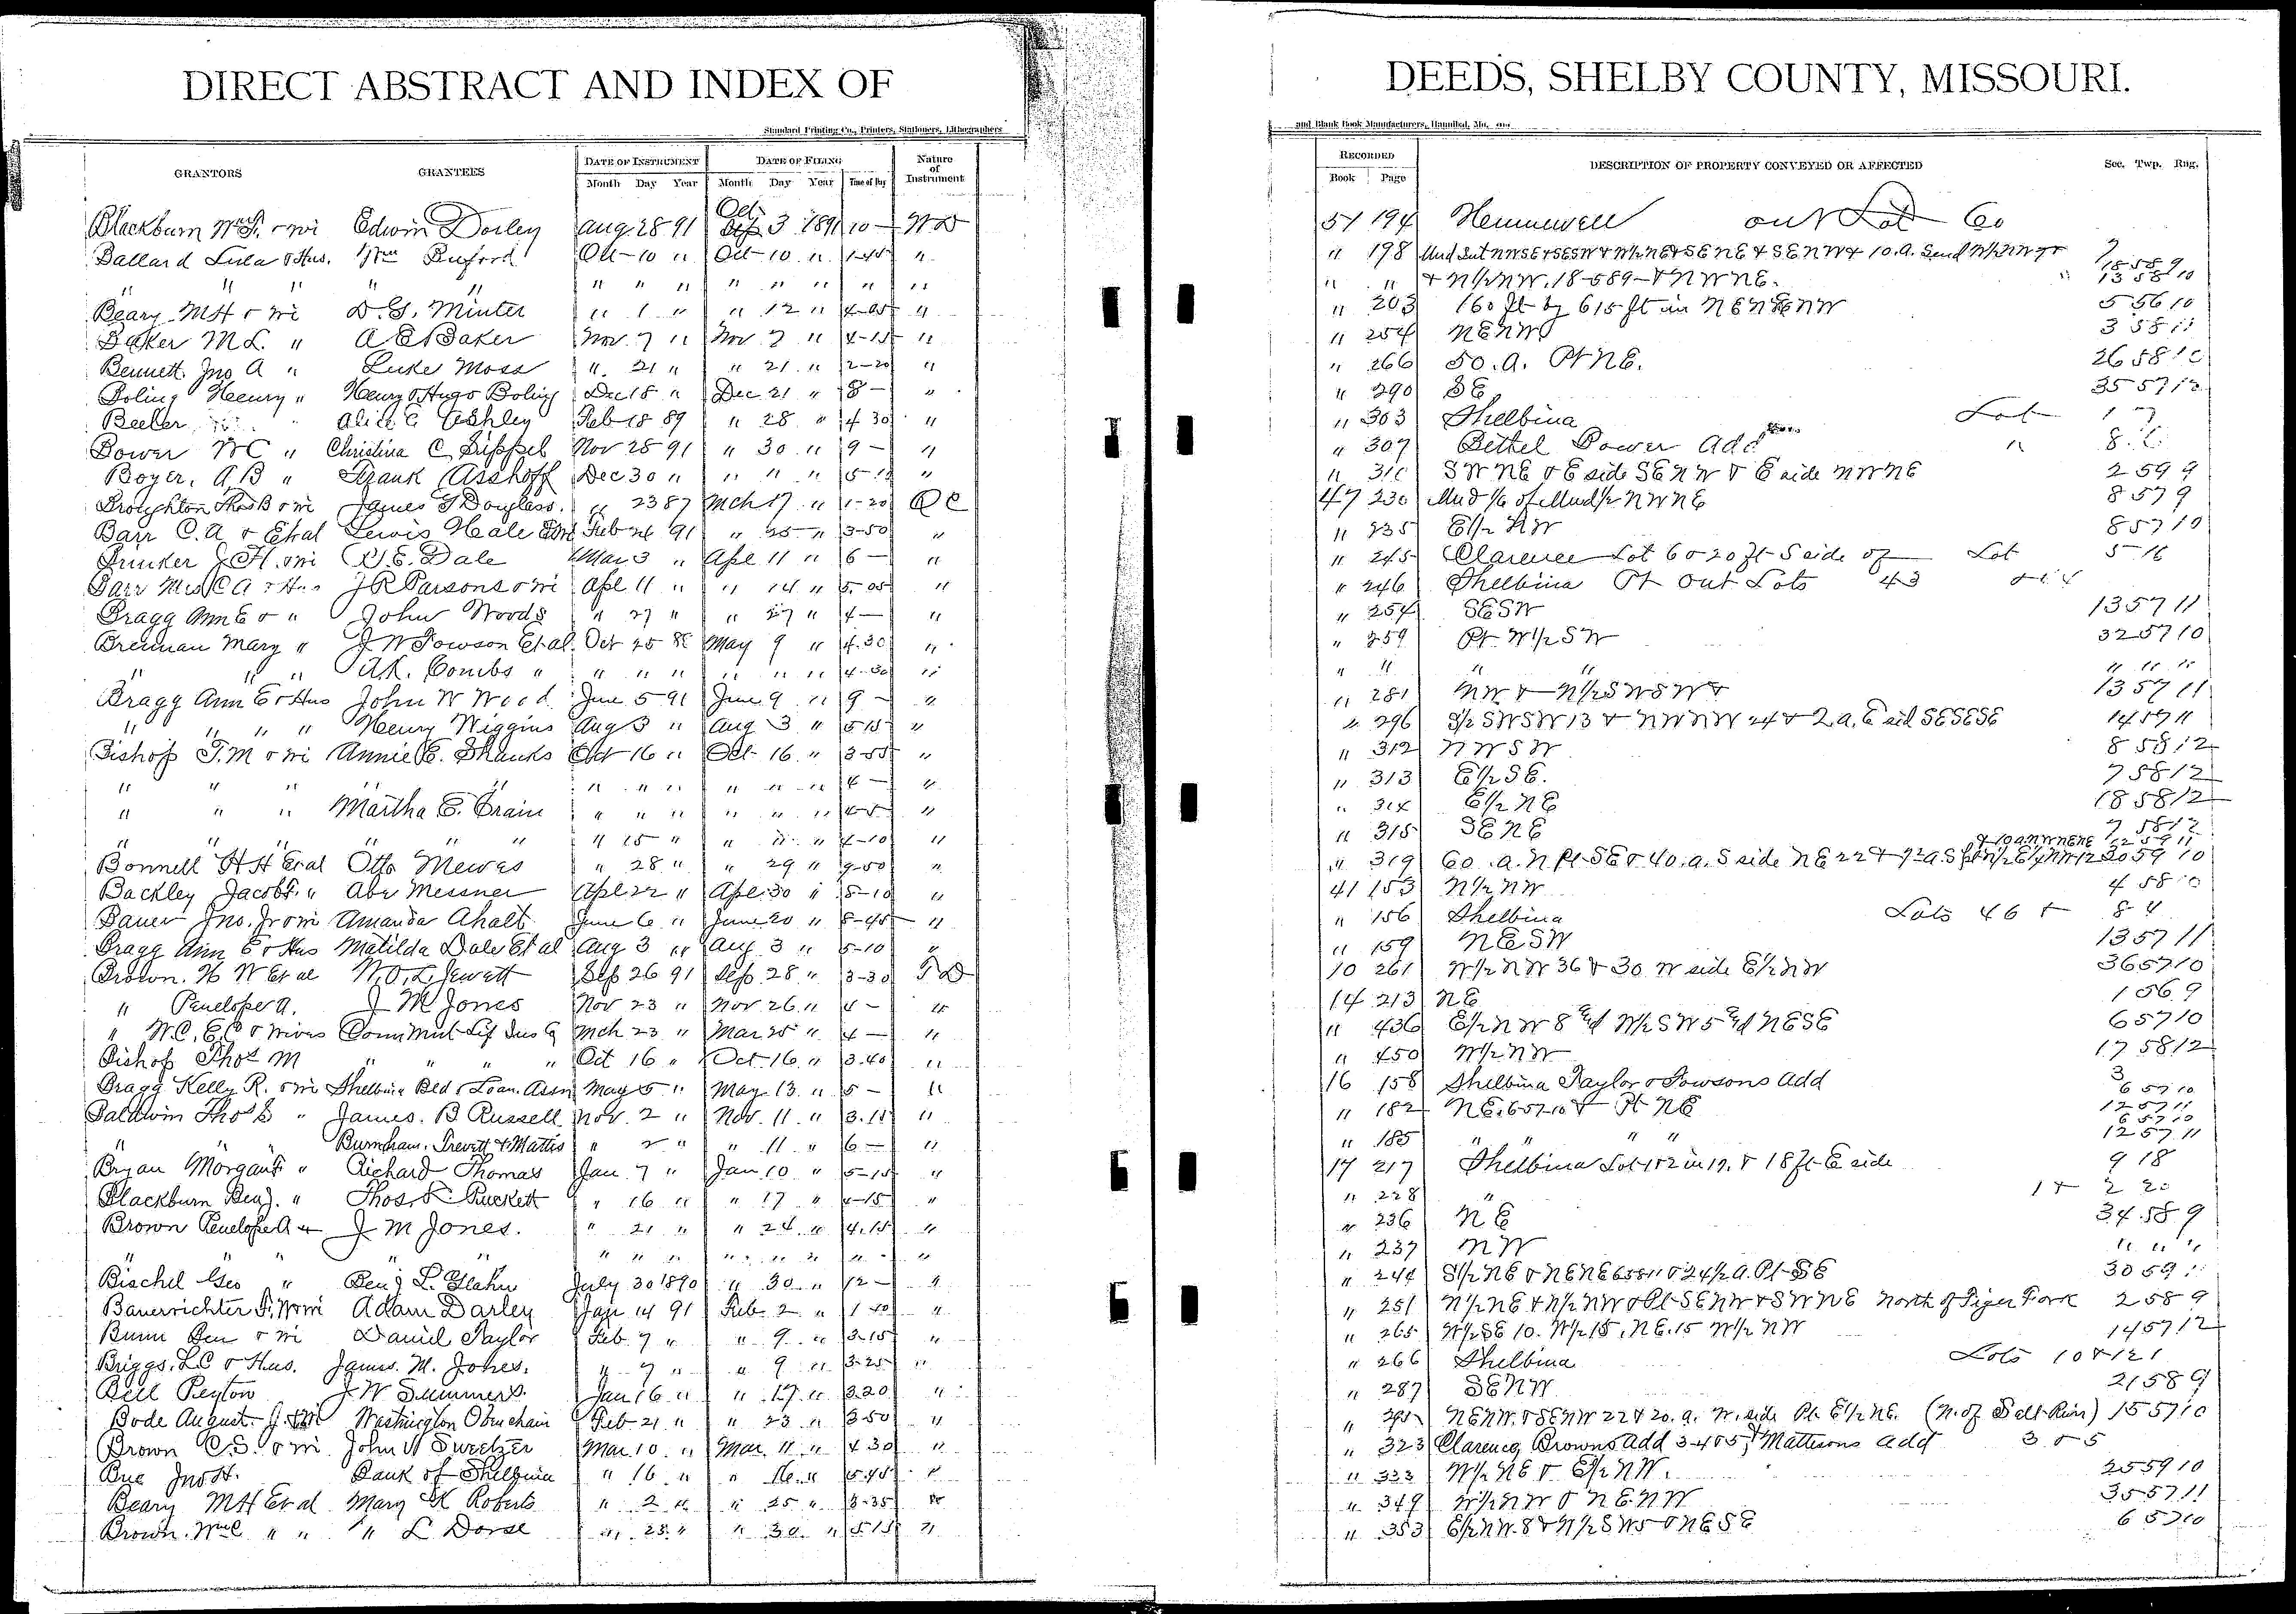 DIRECT ABSTRACT AND INDEX OF
Standard Printing Co., Printers, Stationers, Lithographers
GRANTORS GRANTEES DATE OF INSTRUMENT DATE OF FILING Nature of Instrument
Month Day Year Month Day Year Time of Day
Blackburn Wm & wi Edwin Dorley Aug 28 91 Oct 3 1891 10 — WD
Ballard Lula & Hus. Wm Buford Oct 10 " Oct 10 " 1-45 "
" " " " " " " " " " " "
Beary MH & wi D.G. Minter " 1 " " 12 " 4-05 "
Baker M L. " A E Baker Nov. 7 " Nov. 7 " 4-15 "
Bennett Jno A " Luke Moss " 21 " " 21 " 2-20 "
Boling Henry " Henry & Hugo Boling Dec 18 " Dec 21 " 8 — "
Beeler Alice C Ashley Feb 18 89 " 28 " 4 30 "
Bower WC " Christina C Sippel Nov 28 91 " 30 " 9 — "
Boyer, A B " Frank Asshoff Dec 30 " " " " "
Broughton Thos B & wi James T Douglass. " 23 87 Mch 17 " 1-20 QC
Barr C. A & Etal Lewis Hale Feb 26 91 " 25 " 3-50 "
Brinker J H. & wi D.E. Dale Mar 3 " Apl 11 " 6 — "
Barr Mrs C A & Hus J R Parsons & wi Apl 11 " " 14 " 5-05 "
Bragg Ann E & " John Woods " 27 " " 27 " 4 — "
Brennan Mary " J W Towson Et al. Oct 25 May 9 " 4.30 "
" " A.K. Combs " " " " " " " 4-30 "
Bragg Ann E & Hus John W Wood June 5 91 June 9 " 9 — "
" " " " Henry Wiggins Aug 3 " Aug 3 " 5 15 "
Bishop T.M & wi Annie E. Shanks Oct 16 " Oct 16 " 3-55 "
" " " " " " " " " " 4 — "
" " " Martha E. Crain " " " " " " "
" " " " " " " 15 " " " " 4-10 "
Bonnell H H Et al Otto Mewes " 28 " " 29 " 9-50 "
Backley Jacob F. " Abe Messner Apl 22 " Apl 30 " 5-10 "
Bauer Jno. Jr & wi Amanda Ahalt June 6 " June 20 " 8-45 "
Bragg Ann E & Hus Matilda Dale Et al Aug 3 " Aug 3 " 5-10 "
Brown. H W Et al W.O.L. Jewett Sep 26 91 Sep 28 " 3-30 TD
" Penelope A. J M Jones Nov 23 " Nov 26 " 4 — "
" W.C. E.C & wives Conn Mut Lif Ins Co Mch 23 " Mar 25 " 4 — "
Bishop Thos M " " " " Oct 16 " Oct 16 " 3.40 "
Bragg Kelly R. & wi Shelbina Bld & Loan Assn May 5 " May 13 " 5 — "
Baldwin Thos B " James. B Russell Nov. 2 " Nov. 11 " 3.11 "
" " " Burnham, Trevett & Mattis " 2 " " 11 " 6 — "
Bryan Morgan " Richard Thomas Jan 7 " Jan 10 " 5-15 "
Blackburn Benj. " Thos. R Puckett " 16 " " 17 " 4-15 "
Brown Penelope A " J M Jones. " 21 " " 24 " 4.15 "
" " " " " " " " " " " " " "
Bischel Geo " Benj L. Glahn July 30 1890 " 30 " 12 — "
Bauerrichter F. W & wi Adam Darley Jan 14 91 Feb 2 " 1 40 "
Bunn Ben & wi Daniel Taylor Feb 7 " " 9 " 3-15 "
Briggs. L C & Hus. James. M. Jones. " 7 " " 9 " 3-25 "
Bell Peyton J W Summers. Jan 16 " " 17 " 3.20 "
Bode August. J. & wi Washington Obenchain Feb 21 " " 23 " 3 50 "
Brown C. S. & wi John W Sweetzer Mar 10 " Mar. 11 " 4 30 "
Bue Jno H. Bank of Shelbina " 16 " " 16 " 5.45 "
Beary MH Et al Mary K Roberts " 2 " " 25 " 8-35 "
Brown. Wm C " " " L Dorse " 23 " " 30 " 5 15 "
DEEDS, SHELBY COUNTY, MISSOURI.
and Blank Book Manufacturers, Hannibal, Mo.
RECORDED DESCRIPTION OF PROPERTY CONVEYED OR AFFECTED Sec. Twp. Rng.
Book Page
51 194 Hunnewell out Lot 60
" 198 Und Int NWSE & SESW & W½NE & SENE & SENW & 10.a.
" " & N½NW. 18-589- & NWNE. " 13 58 10
" 203 160 ft by 615 ft in 5 56 10
" 254 NENW 3 58 11
" 266 50. a. Pt NE. 26 58 10
" 290 SE 35 57 12
" 303 Shelbina Lot 1 7
" 307 Bethel Bower Add " 8.
" 310 SWNE & E side SENW & E side NWNE 2 59 9
47 230 Und 1/6 of Und ½ NWNE 8 57 9
" 235 E½ NW 8 57 10
" 245 Clarence Lot 6 & 20 ft S side of Lot 5 16
" 246 Shelbina Pt out Lots 43
" 254 SESW 13 57 11
" 259 Pt W½SW 32 57 10
" " " " " " "
" 281 NW & N½SWSW & 13 57 11
" 296 S½SWSW 13 & NWNW 24 & 2.a. E sid SESESE 14 57 11
" 312 NWSW 8 58 12
" 313 E½SE. 7 58 12
" 314 E½NE 18 58 12
" 315 SENE 7 58 12
" 319 60.a. N Pt SE & 40.a. S side NE 22
41 153 N½NW 4 58 10
" 156 Shelbina Lots 46 & 84
" 159 NESW 13 57 11
10 261 W½NW 36 & 30 W side E½NW 36 57 10
14 213 NE 1 56 9
" 436 E½NW 8 & W½SW 5 & NESE 6 57 10
" 450 W½NW 17 58 12
16 158 Shelbina Taylor & Towsons Add 3
" 182 NE. 6 57-10 & Pt NE 6 57 10
12 57 11
" 185 " " " " 6 57 10
12 57 11
17 217 Shelbina Lot 1 & 2 in 19. & 18 ft E side 9 18
" 228 " 1 & 2 20
" 236 NE 34 58 9
" 237 NW " " "
" 244 S½NE & NENE & 24½ a. Pt SE 30 59
" 251 N½NE & N½NW & Pt SENW & SWNE North of Tiger Fork 2 58 9
" 265 W½SE 10. W½ 15, NE. 15 W½NW 14 57 12
" 266 Shelbina Lots 10 & 121
" 287 SENW 21 58 9
" NENW. & SENW 22 & 20. a. W. side Pt. E½NE. (N. of Salt River) 15 57 10
" 323 Clarence, Browns Add 3-4 & 5, & Mattesons Add 3 & 5
" 333 W½NE & E½NW. 25 59 10
" 349 W½NW & NENW 35 57 11
" 353 E½NW. 8 & W½SW 5 & NESE 6 57 10